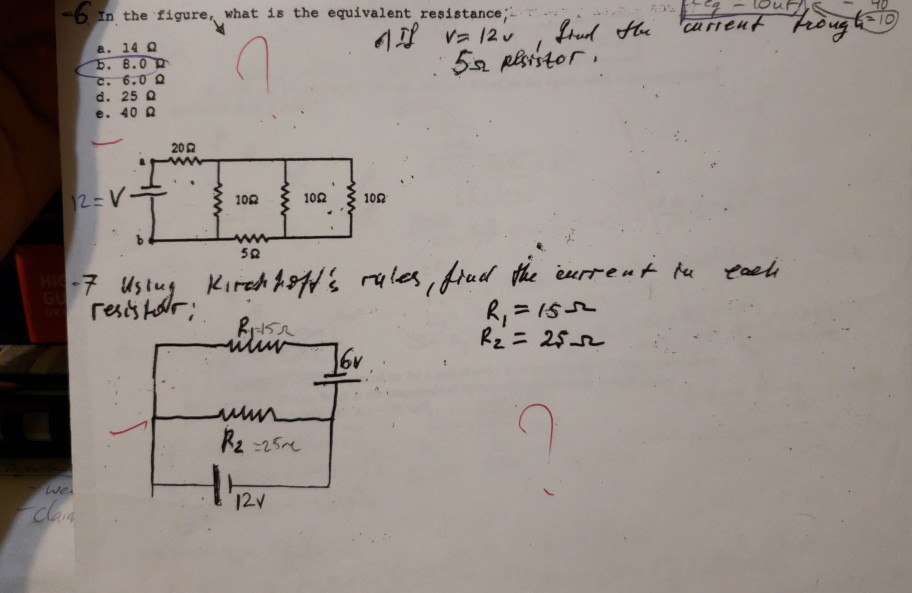 -6 In the figure, what is the equivalent resistance;
a. 14 Ω
b. 8.0 Ω
c. 6.0 Ω
d. 25 Ω
e. 40 Ω
?
If V = 12v, find the current trough
5Ω resistor.
40
=10
20Ω
a
12 = V
10Ω
10Ω
10Ω
b
5Ω
-7 Using Kirchhoff's rules, find the current in each
resistor;
R₁ = 15Ω
R₂ = 25Ω
R₁=15Ω
6v
R₂ = 25Ω
12v
?
HIG
GU